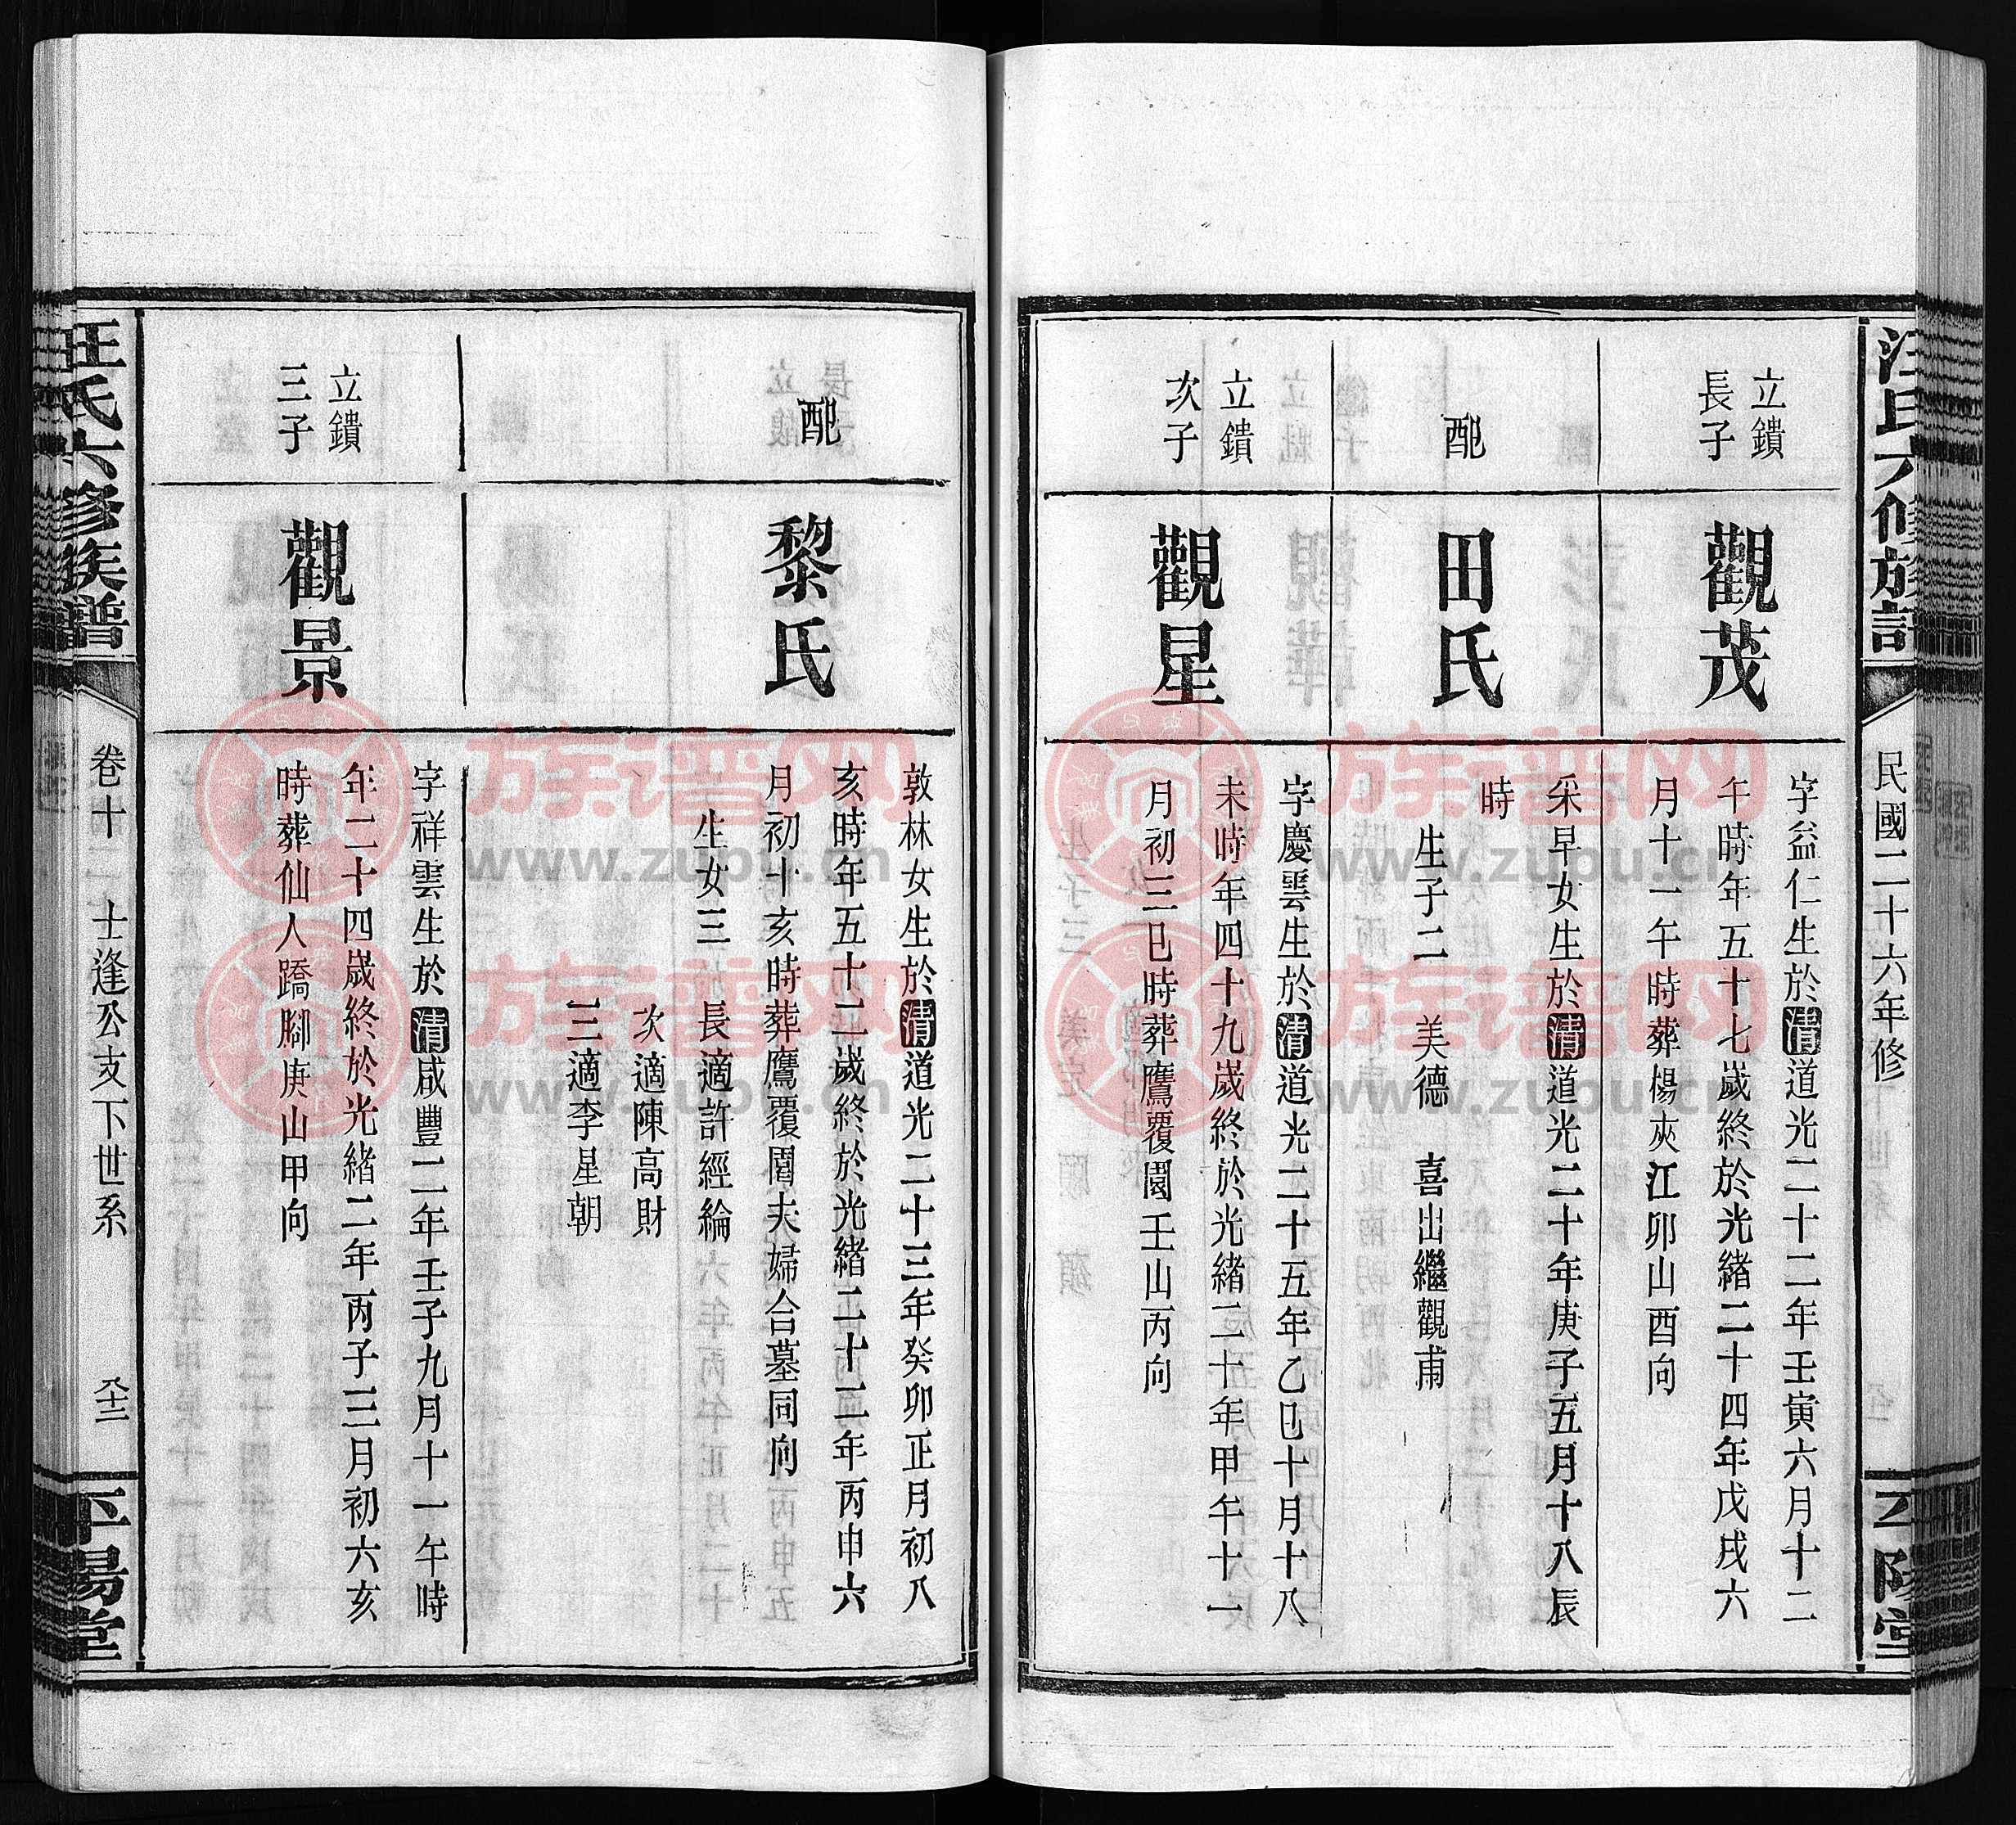 汪氏六修族譜
民國二十六年修
平陽堂
立鐀
長子
觀茂
字益仁生於清道光二十二年壬寅六月十二
午時年五十七歲終於光緒二十四年戊戌六
月十一午時葬楊夾江卯山酉向
配
田氏
采早女生於清道光二十年庚子五月十八辰
時
生子二 美德 喜出繼觀甫
立鐀
次子
觀星
字慶雲生於清道光二十五年乙巳十月十八
未時年四十九歲終於光緒二十年甲午十一
月初三巳時葬鷹覆園壬山丙向
配
黎氏
敦林女生於清道光二十三年癸卯正月初八
亥時年五十二歲終於光緒二十二年丙申六
月初十亥時葬鷹覆園夫婦合墓同向
生女三 長適許經綸
次適陳高財
三適李星朝
立鐀
三子
觀景
字祥雲生於清咸豐二年壬子九月十一午時
年二十四歲終於光緒二年丙子三月初六亥
時葬仙人蹻腳庚山甲向
汪氏六修族譜
卷十二 士逢公支下世系
平陽堂
族谱网
www.zupu.cn
族谱网
www.zupu.cn
族谱网
www.zupu.cn
族谱网
www.zupu.cn